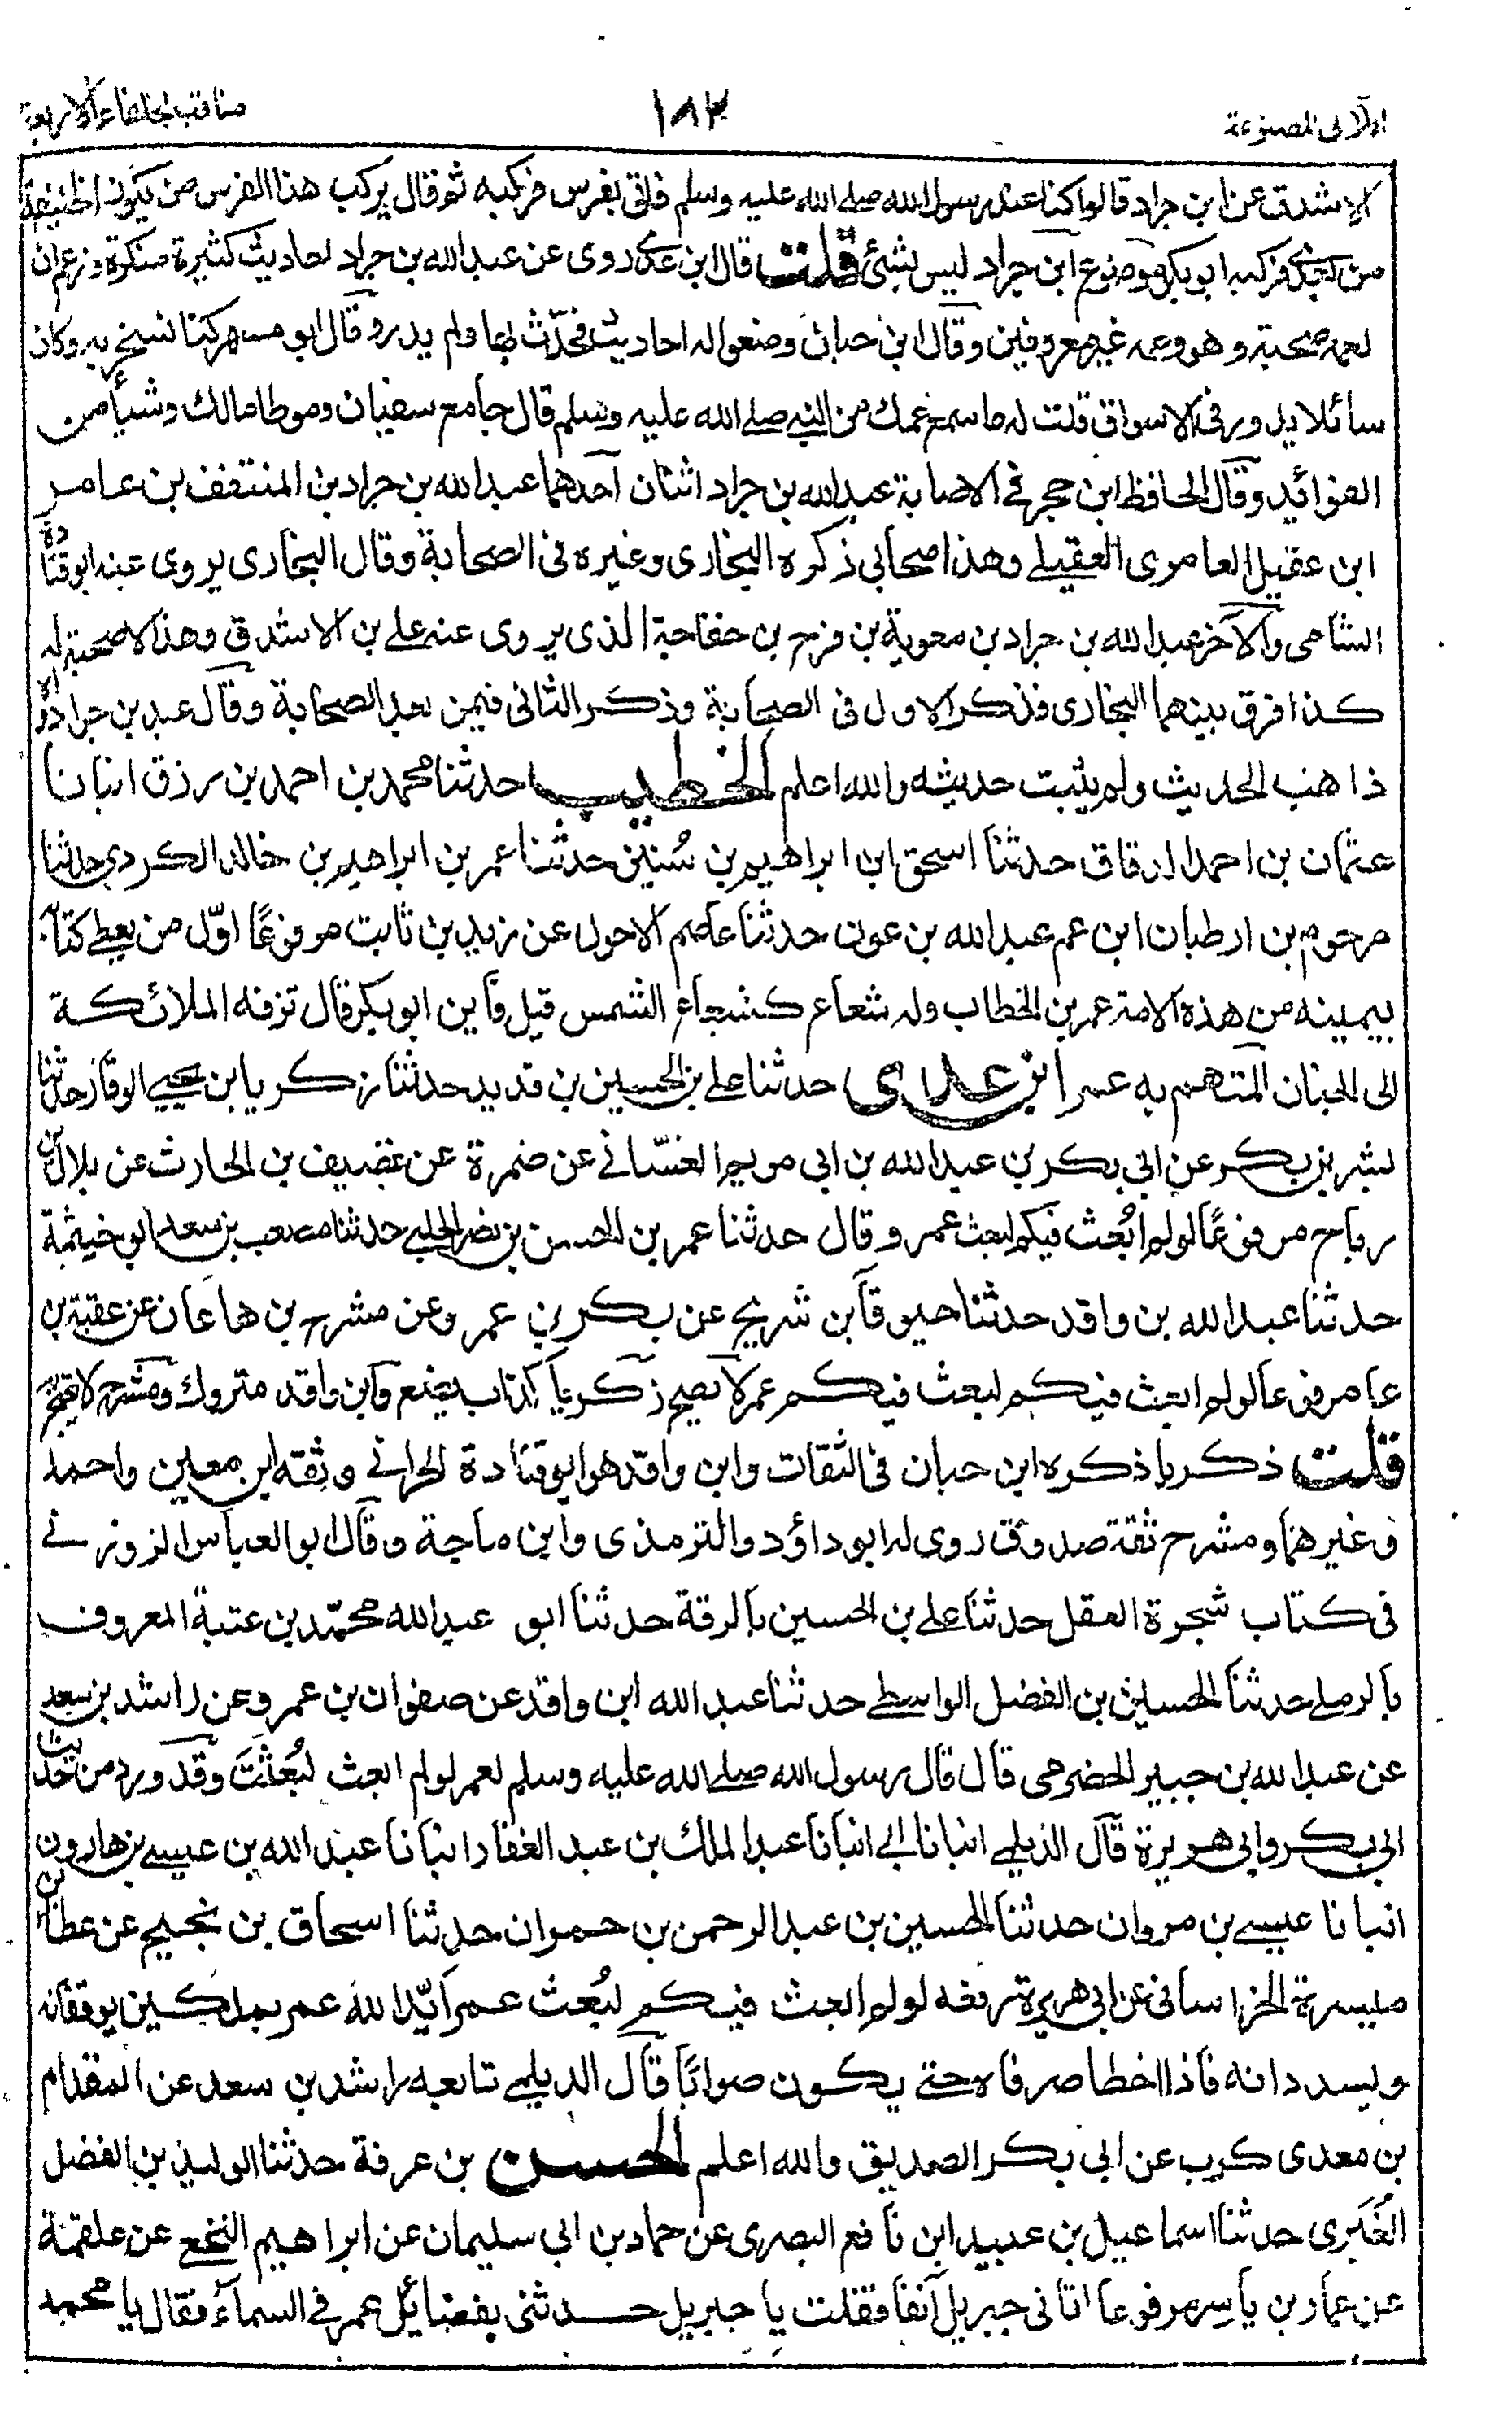 اللآلی المصنوعة
١٨٢
مناقب الخلفاء الاربعة
الاشدق عن ابن جراد قالوا كنا عند رسول الله صلے الله عليه وسلم فاتی بفرس فركبه ثم قال يركب هذا الفرس من يكون الخليفة
من بعدی فركبه ابو بكر موضوع ابن جراد ليس بشئ قلت قال ابن عدی روی عن عبد الله بن جراد احاديث كثيرة منكرة وزعم ان
لعمه صحبة وهو وعمه غير معروفين وقال ابن حبان وضعوا له احاديث فحدّث بها ولم يدر وقال ابو مسهر كنا نسخر به وكان
سائلا يدور فی الاسواق قلت له ما سمع عمك من النبی صلے الله عليه وسلم قال جامع سفيان وموطا مالك وشيأ من
الفوائد وقال الحافظ ابن حجر فے الاصابة عبد الله بن جراد اثنان احدهما عبد الله بن جراد بن المنتفق بن عامر
ابن عقيل العامری العقيلے وهذا صحابی ذكره البخاری وغيره فی الصحابة وقال البخاری يروی عنه ابو قتادة
الشامی والآخر عبد الله بن جراد بن معوية بن فرج بن خفاجة الذی يروی عنه علے بن الاشدق وهذا لا صحبة له
كذا فرق بينهما البخاری فذكر الاول فی الصحابة وذكر الثانی فيمن بعد الصحابة وقال عبد بن جراد واه
ذاهب الحديث ولم يثبت حديثه والله اعلم الخطيب حدثنا محمد بن احمد بن رزق انبانا
عثمان بن احمد الدقاق حدثنا اسحق ابن ابراهيم بن سُنين حدثنا عمر بن ابراهيم بن خالد الكردی حدثنا
مرحوم بن ارطبان ابن عم عبد الله بن عون حدثنا عاصم الاحول عن زيد بن ثابت مرفوعًا اوّل من يعطے كتابه
بيمينه من هذه الامة عمر بن الخطاب وله شعاع كشعاع الشمس قيل فاين ابو بكر قال تزفه الملائكة
الی الجنان المتهم به عمر ابن عدی حدثنا علے بن الحسين بن قديد حدثنا زكريا ابن يحيی الوقار حدثنا
بشر بن بكر عن ابی بكر بن عبد الله بن ابی مريم الغسّانے عن ضمرة عن غضيف بن الحارث عن بلال بن
رباح مرفوعًا لو لم اُبعث فيكم لبعث عمر وقال حدثنا عمر بن الحسن بن نصر الحلبے حدثنا مصعب بن سعد ابو خيثمة
حدثنا عبد الله بن واقد حدثنا حيوة ابن شريح عن بكر بن عمرو عن مشرح بن هاعان عن عقبة بن
عامر مرفوعا لو لم ابعث فيكم لبعث فيكم عمر لا يصح زكريا كذاب يضع وابن واقد متروك ومشرح لا يحتج به
قلت زكريا ذكره ابن حبان فی الثقات وابن واقد هو ابو قتادة الحرانے وثقه ابن معين واحمد
وغيرهما ومشرح ثقة صدوق روی له ابو داؤد والترمذی وابن ماجة وقال ابو العباس الزوزنے
فی كتاب شجرة العقل حدثنا علے بن الحسين بالرقة حدثنا ابو عبد الله محمّد بن عتبة المعروف
بالرملے حدثنا الحسين بن الفضل الواسطے حدثنا عبد الله ابن واقد عن صفوان بن عمرو عن راشد بن سعد
عن عبد الله بن جبير الحضرمی قال قال رسول الله صلے الله عليه وسلم لعمر لو لم ابعث لبُعثتَ وقد ورد من حديث
ابی بكر وابی هريرة قال الديلمے انبانا ابی انبانا عبد الملك بن عبد الغفار انبانا عبد الله بن عيسے بن هارون
انبانا عيسے بن مروان حدثنا الحسين بن عبد الرحمن بن حمران حدثنا اسحاق بن نجيح عن عطاء بن
ميسرة الخراسانی عن ابی هريرة رفعه لو لم ابعث فيكم لبُعث عمر ايّد الله عمر بملكين يوفقانه
ويسددانه فاذا اخطا صرفاه حتے يكون صوابًا قال الديلمے تابعه راشد بن سعد عن المقدام
بن معدی كرب عن ابی بكر الصديق والله اعلم الحسن بن عرفة حدثنا الوليد بن الفضل
العَنَزی حدثنا اسماعيل بن عبيد ابن نافع البصری عن حماد بن ابی سليمان عن ابراهيم النخعے عن علقمة
عن عمار بن ياسر مرفوعا اتانی جبريل آنفا فقلت يا جبريل حدثنی بفضائل عمر فے السماء فقال يا محمد